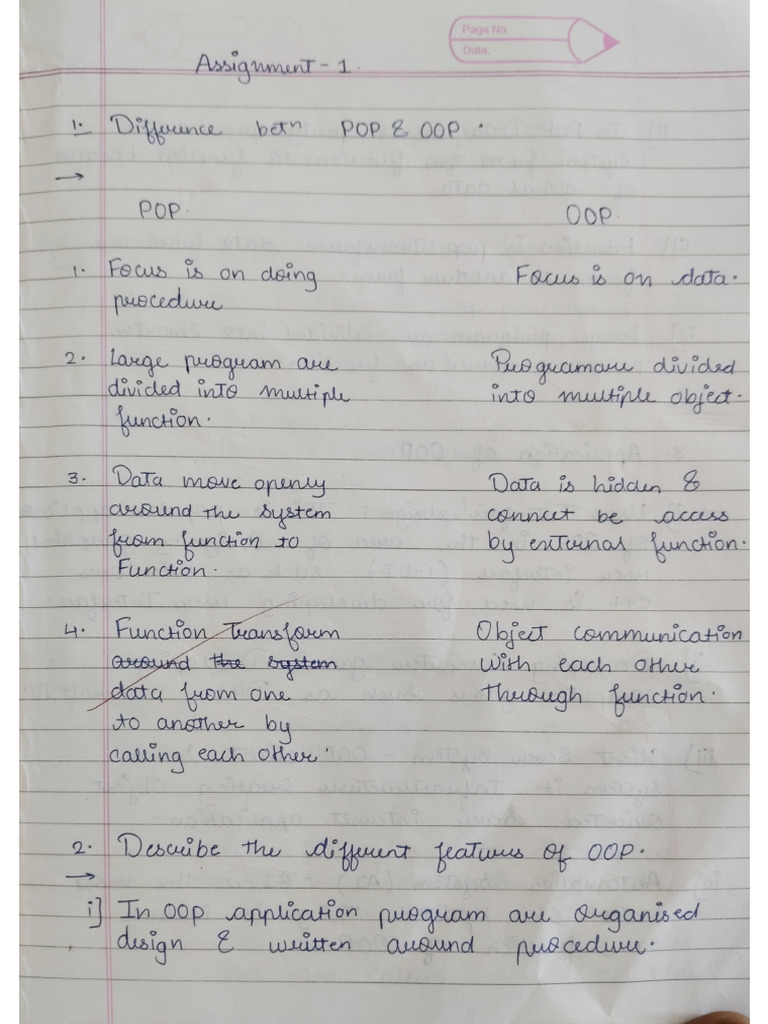 Page No.
Date.
Assignment - 1.
1. Difference betn POP & OOP.
→
POP. OOP.
1. Focus is on doing Focus is on data.
procedure
2. Large program are Programare divided
divided into multiple into multiple object.
function.
3. Data move openly Data is hidden &
around the system cannot be access
from function to by external function.
Function.
4. Function Transform Object communication
around the system with each other
data from one through function.
to another by
calling each other.
2. Describe the different features of OOP.
→
i] In OOP application program are organised
design & written around procedure.